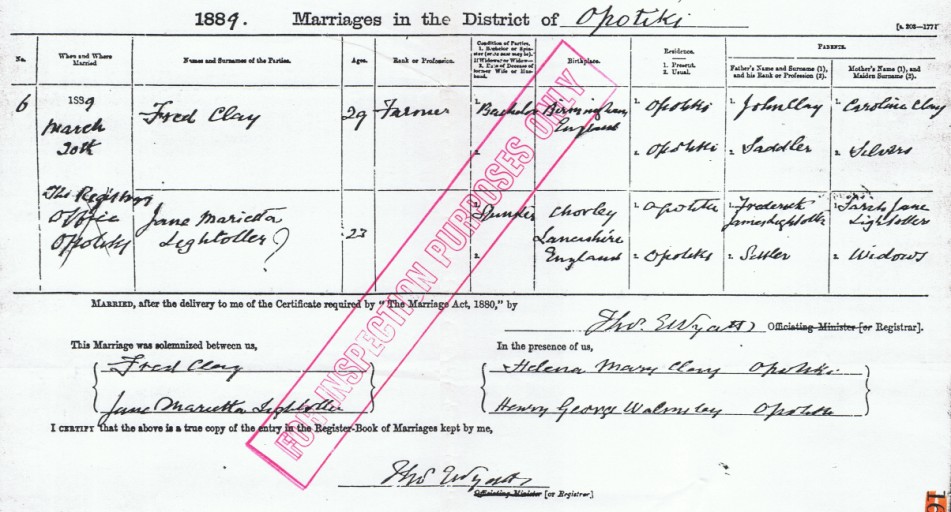 1889. Marriages in the District of Opotiki
[s. 203—1771
No.
When and Where Married
Names and Surnames of the Parties.
Ages.
Rank or Profession.
Condition of Parties.
1. Bachelor or Spinster (or as case may be).
If Widower or Widow—
2. Date of Decease of former Wife or Husband.
Birthplace.
Residence.
1. Present.
2. Usual.
PARENTS.
Father's Name and Surname (1), and his Rank or Profession (2).
Mother's Name (1), and Maiden Surname (2).
6
1889
March
20th
The Registrars
Office
Opotiki
Fred Clay
29
Farmer
1. Bachelor
2.
Birmingham
England
1. Opotiki
2. Opotiki
1. John Clay
2. Saddler
1. Caroline Clay
2. Silvers
Jane Marietta
Lightoller
23
1. Spinster
2.
Chorley
Lancashire
England
1. Opotiki
2. Opotiki
1. Frederick
James Lightoller
2. Settler
1. Sarah Jane
Lightoller
2. Widows
MARRIED, after the delivery to me of the Certificate required by "The Marriage Act, 1880," by
Thos E Wyatt Officiating Minister [or Registrar].
This Marriage was solemnized between us,
Fred Clay
Jane Marietta Lightoller
In the presence of us,
Helena Mary Clay Opotiki
Henry George Walmsley Opotiki
I CERTIFY that the above is a true copy of the entry in the Register-Book of Marriages kept by me,
Thos E Wyatt
Officiating Minister [or Registrar]
FOR INSPECTION PURPOSES ONLY